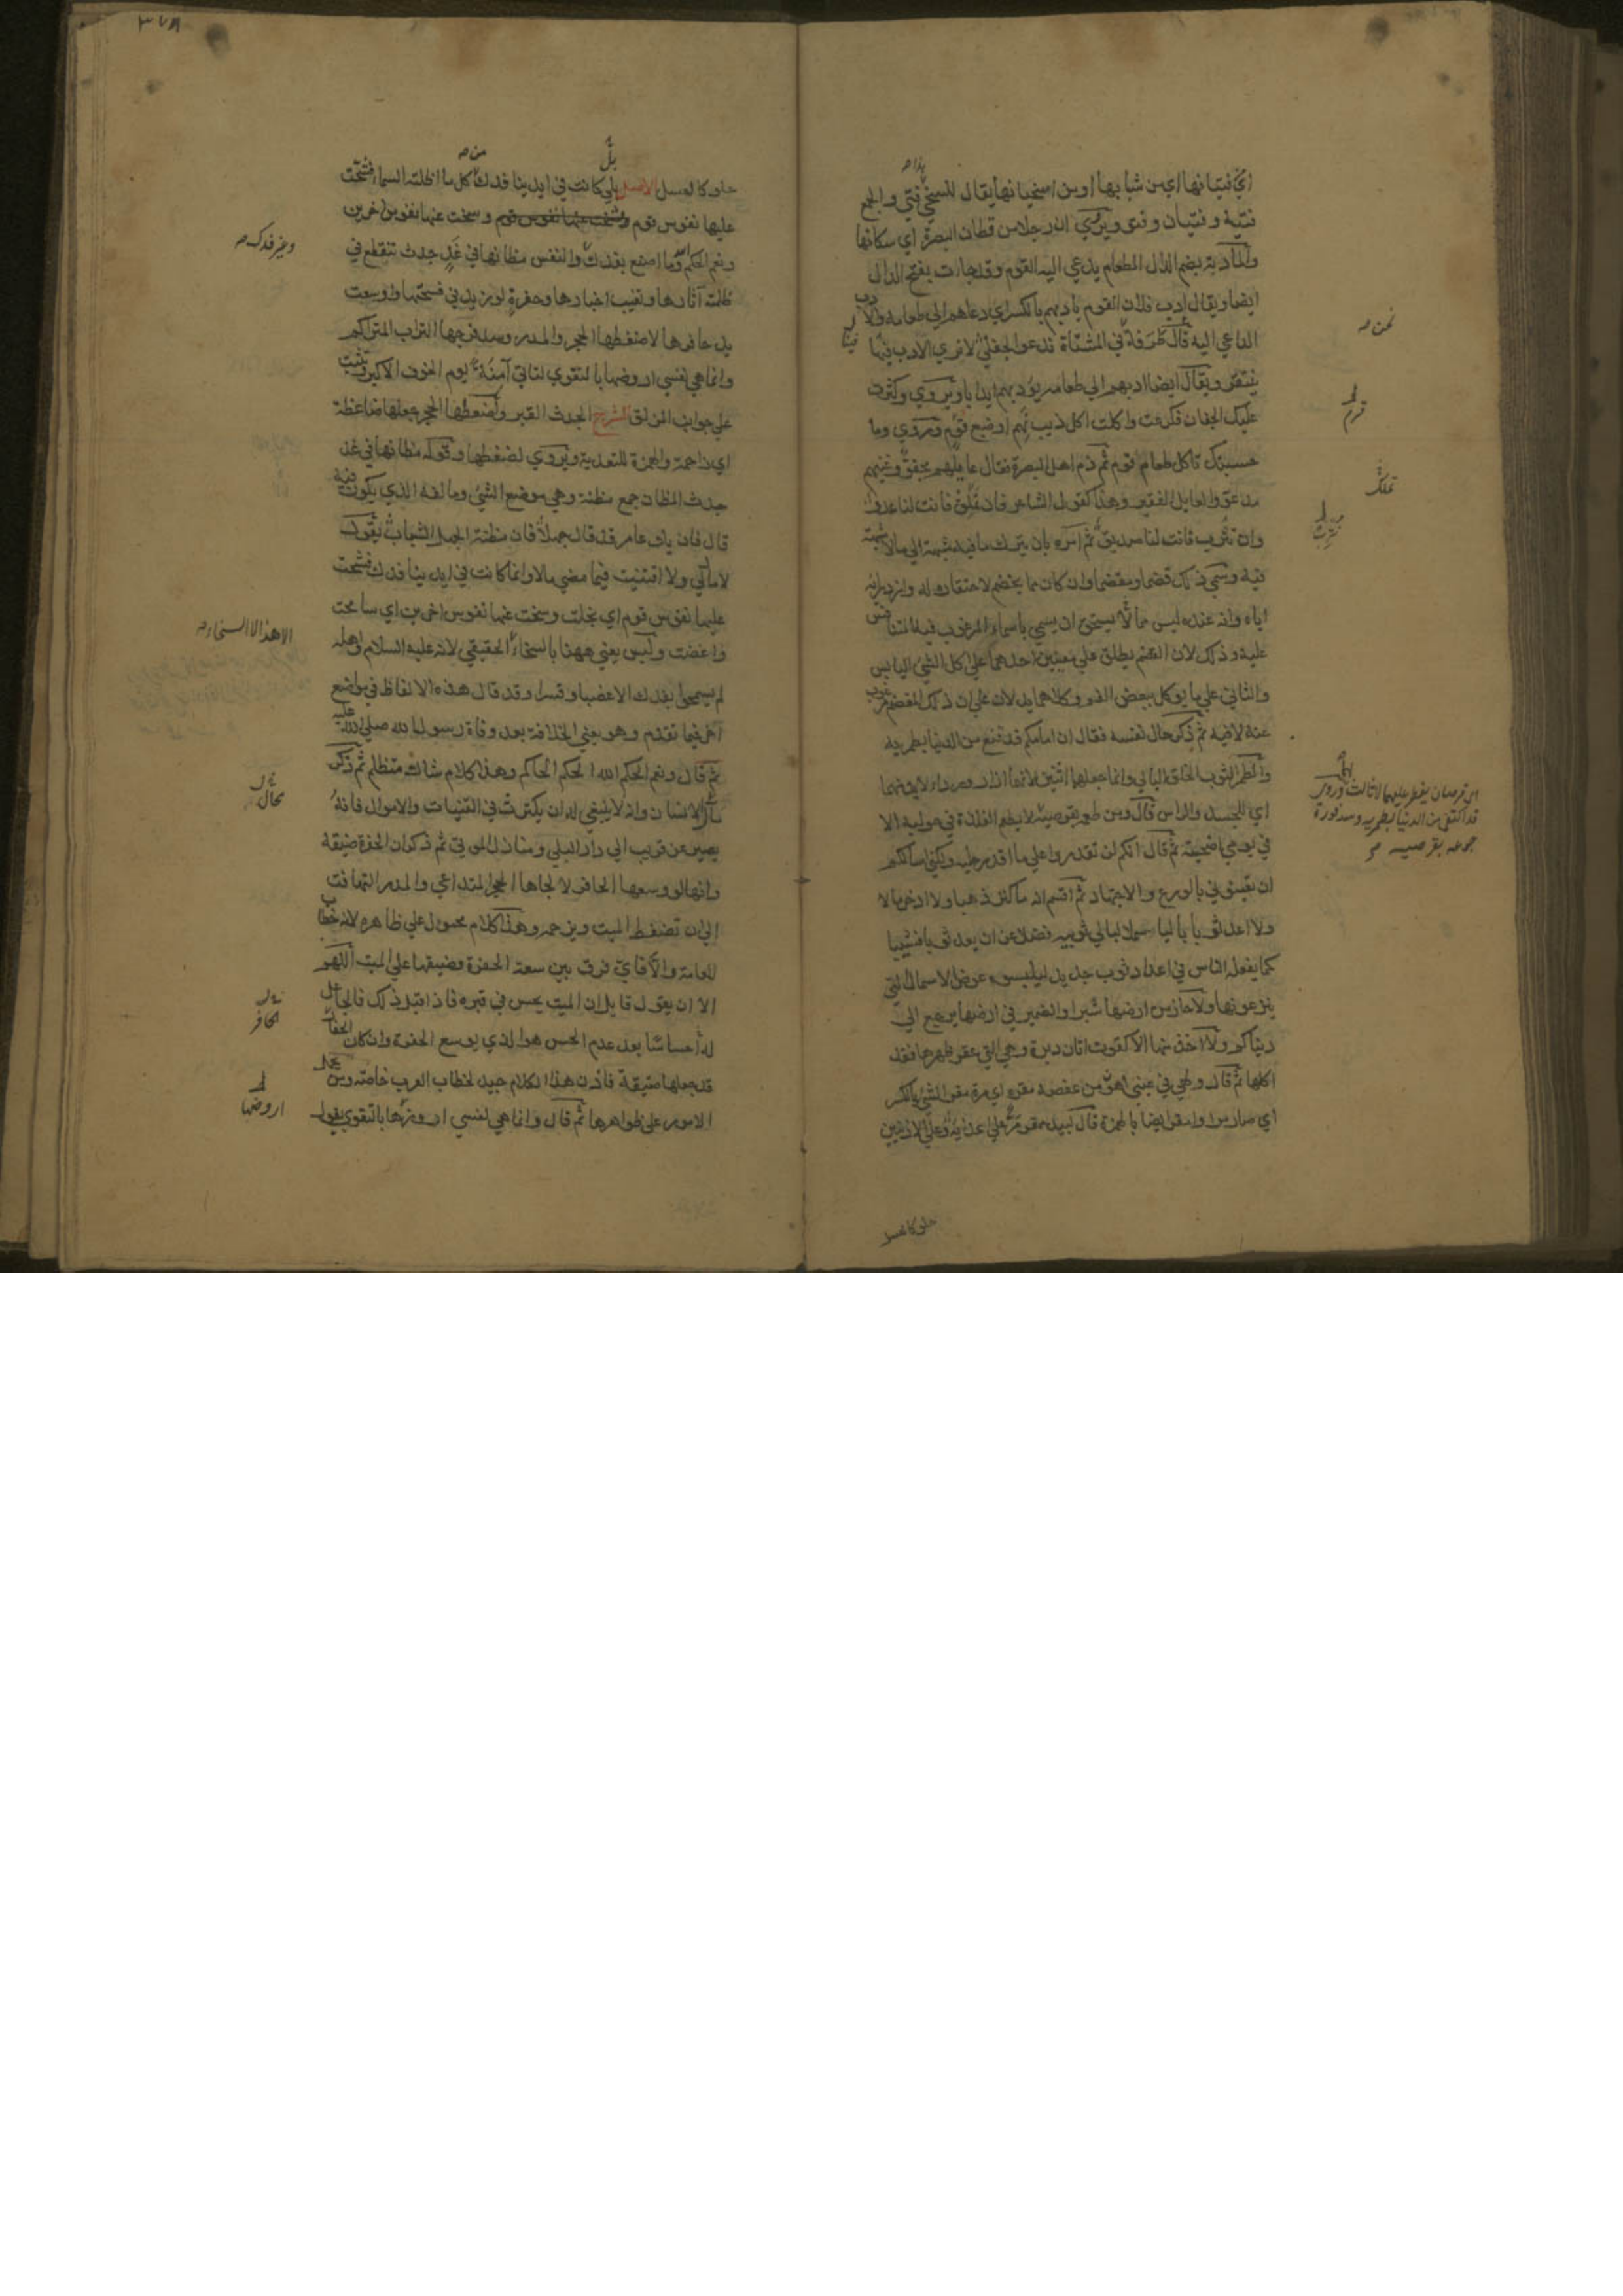 اي من فتيانها اي من شبابها او من اسخيائها يقال للسخي هذا فتي والجمع
فتية وفتيان وفتو ويروي ان رجلا من قطان البصرة اي سكانها
والمأدبة بضم الدال الطعام يدعي اليه القوم وقد جاءت بفتح الدال
ايضا ويقال ادب فلان القوم يادبهم بالكسر اي دعاهم الي طعامه والادب
الداعي اليه قال طرفة نحن في المشتاة ندعو الجفلي لا تري الادب فينا
ينتقر ويقال ايضا ادبهم الي طعامه يؤدبهم ايدابا ويروي وكثرت
عليك الجفان فكرعت واكلت اكل ذيب نهم او ضبع قرم وروي وما
حسبتك تاكل طعام قوم ثم ذم اهل البصرة فقال عايلهم مجفو وغنيهم
مدعو والعايل الفقير وهذا كقول الشاعر فان تملق فانت لنا عدو
وان تثرب فانت لنا صديق ثم امره بان يترك ما فيه شبهة الي ما لا شبهة
فيه وسمي ذلك قضما ومقضما وان كان مما يخضم لاحتقاره له وازدرائه
اياه وانه عنده ليس مما يستحق ان يسمي باسماء المرغوب فيه المتنافس
عليه وذلك لان القضم يطلق علي معنيين احدهما علي اكل الشي اليابس
والثاني علي ما يوكل ببعض الفم وكلاهما يدلان علي ان ذلك المقضم مرغوب
عنه لا فيه ثم ذكر حال نفسه فقال ان امامكم قد قنع من الدنيا بطمريه
والطمر الثوب الخلق البالي وانما جعلهما اثنين لانهما ازار ورداء لا بد منهما
اي للجسد والراس قال ومن طعمه بقرصيه لا يطعم الفلذة في حوليه الا
في يوم اضحية ثم قال انكم لن تقدروا علي ما اقدر عليه ولكني اسالكم
ان تعينوني بالورع والاجتهاد ثم اقسم انه ما كنز ذهبا ولا ادخر مالا
ولا اعد ثوبا باليا سملا لبالي ثوبيه فضلا عن ان يعد ثوبا قشيبا
كما يفعله الناس في اعداد ثوب جديد ليلبسوه عوض الاسمال التي
ينزعونها ولا حاز من ارضها شبرا والضمير في ارضها يرجع الي
دنياكم ولا اخذ منها الا كقوت اتان دبرة وهي التي عقر ظهرها فقد
اكلها ثم قال ولهي في عيني اهون من عفصة مقرة اي مرة مقر الشي بالكسر
اي صار مرا وامقر ايضا بالهمزة قال لبيد ممقر مر علي اعدائه وعلي الادنين
نحن
قرم
تملك
اي قرصان يفطر عليهما لا ثالث لهما وروي
قد اكتفي من الدنيا بطمريه وسد فورة
جوعه بقرصيه
حلو كالعسل
٣٧٨
حلو كالعسل الاصل بلي كانت في ايدينا فدك من كل ما اظلته السماء فشحت
عليها نفوس قوم وسخت عنها نفوس اخرين
ونعم الحكم الله وما اصنع بفدك والنفس مظانها في غد جدث تنقطع في
ظلمته آثارها وتغيب اخبارها وحفرة لو زيد في فسحتها واوسعت
يدا حافرها لاضغطها الحجر والمدر وسد فرجها التراب المتراكم
وانما هي نفسي اروضها بالتقوي لتاتي آمنة يوم الخوف الاكبر وتثبت
علي جوانب المزلق الشرح الجدث القبر واضغطها الحجر جعلها ضاغطة
اي زاحمة والهمزة للتعدية ويروي لضغطها وقوله مظانها في غد
جدث المظان جمع مظنة وهي موضع الشي ومالفه الذي يكون فيه
قال فان يك عامر قد قال جهلا فان مظنة الجهل الشباب يقول
لا مال لي ولا اقتنيت فيما مضي مالا وانما كانت في ايدينا فدك فشحت
عليها نفوس قوم اي بخلت وسخت عنها نفوس اخرين اي سامحت
واغضت وليس يعني ههنا بالسخاء الا هذا لا السخاء الحقيقي لانه عليه السلام واهله
لم يسمحوا بفدك الا غصبا وقسرا وقد قال هذه الالفاظ في مواضع
اخر فيما تقدم وهو يعني الخلافة بعد وفاة رسول الله صلي الله عليه
ثم قال ونعم الحكم الله الحكم الحاكم وهذا كلام شاك متظلم ثم ذكر
مآل الانسان وانه لا ينبغي له ان يكترث في القنيات والاموال فانه
يصير عن قريب الي دار البلي ومنازل الموتي ثم ذكر ان الحفرة ضيقة
وانها لو وسعها الحافر لالجاها الحجر المتداعي والمدر المتهافت
الي ان تضغط الميت ويزحمه وهذا كلام محمول علي ظاهره لانه خطاب
للعامة والا فاي فرق بين سعة الحفرة وضيقها علي الميت اللهم
الا ان يقول قايل ان الميت يحس في قبره فاذا قيل ذلك فالجاعل
له حساسا بعد عدم الحس هو الذي يوسع الحفرة وان كان الحفار
قد جعلها ضيقة فاذن هذا الكلام جيد لخطاب العرب خاصة ومن يحمل
الامور علي ظواهرها ثم قال وانما هي نفسي اروضها بالتقوي يقول
وغير فدك
الا هذا لا السخاء
بحال
الحافر
اروضها